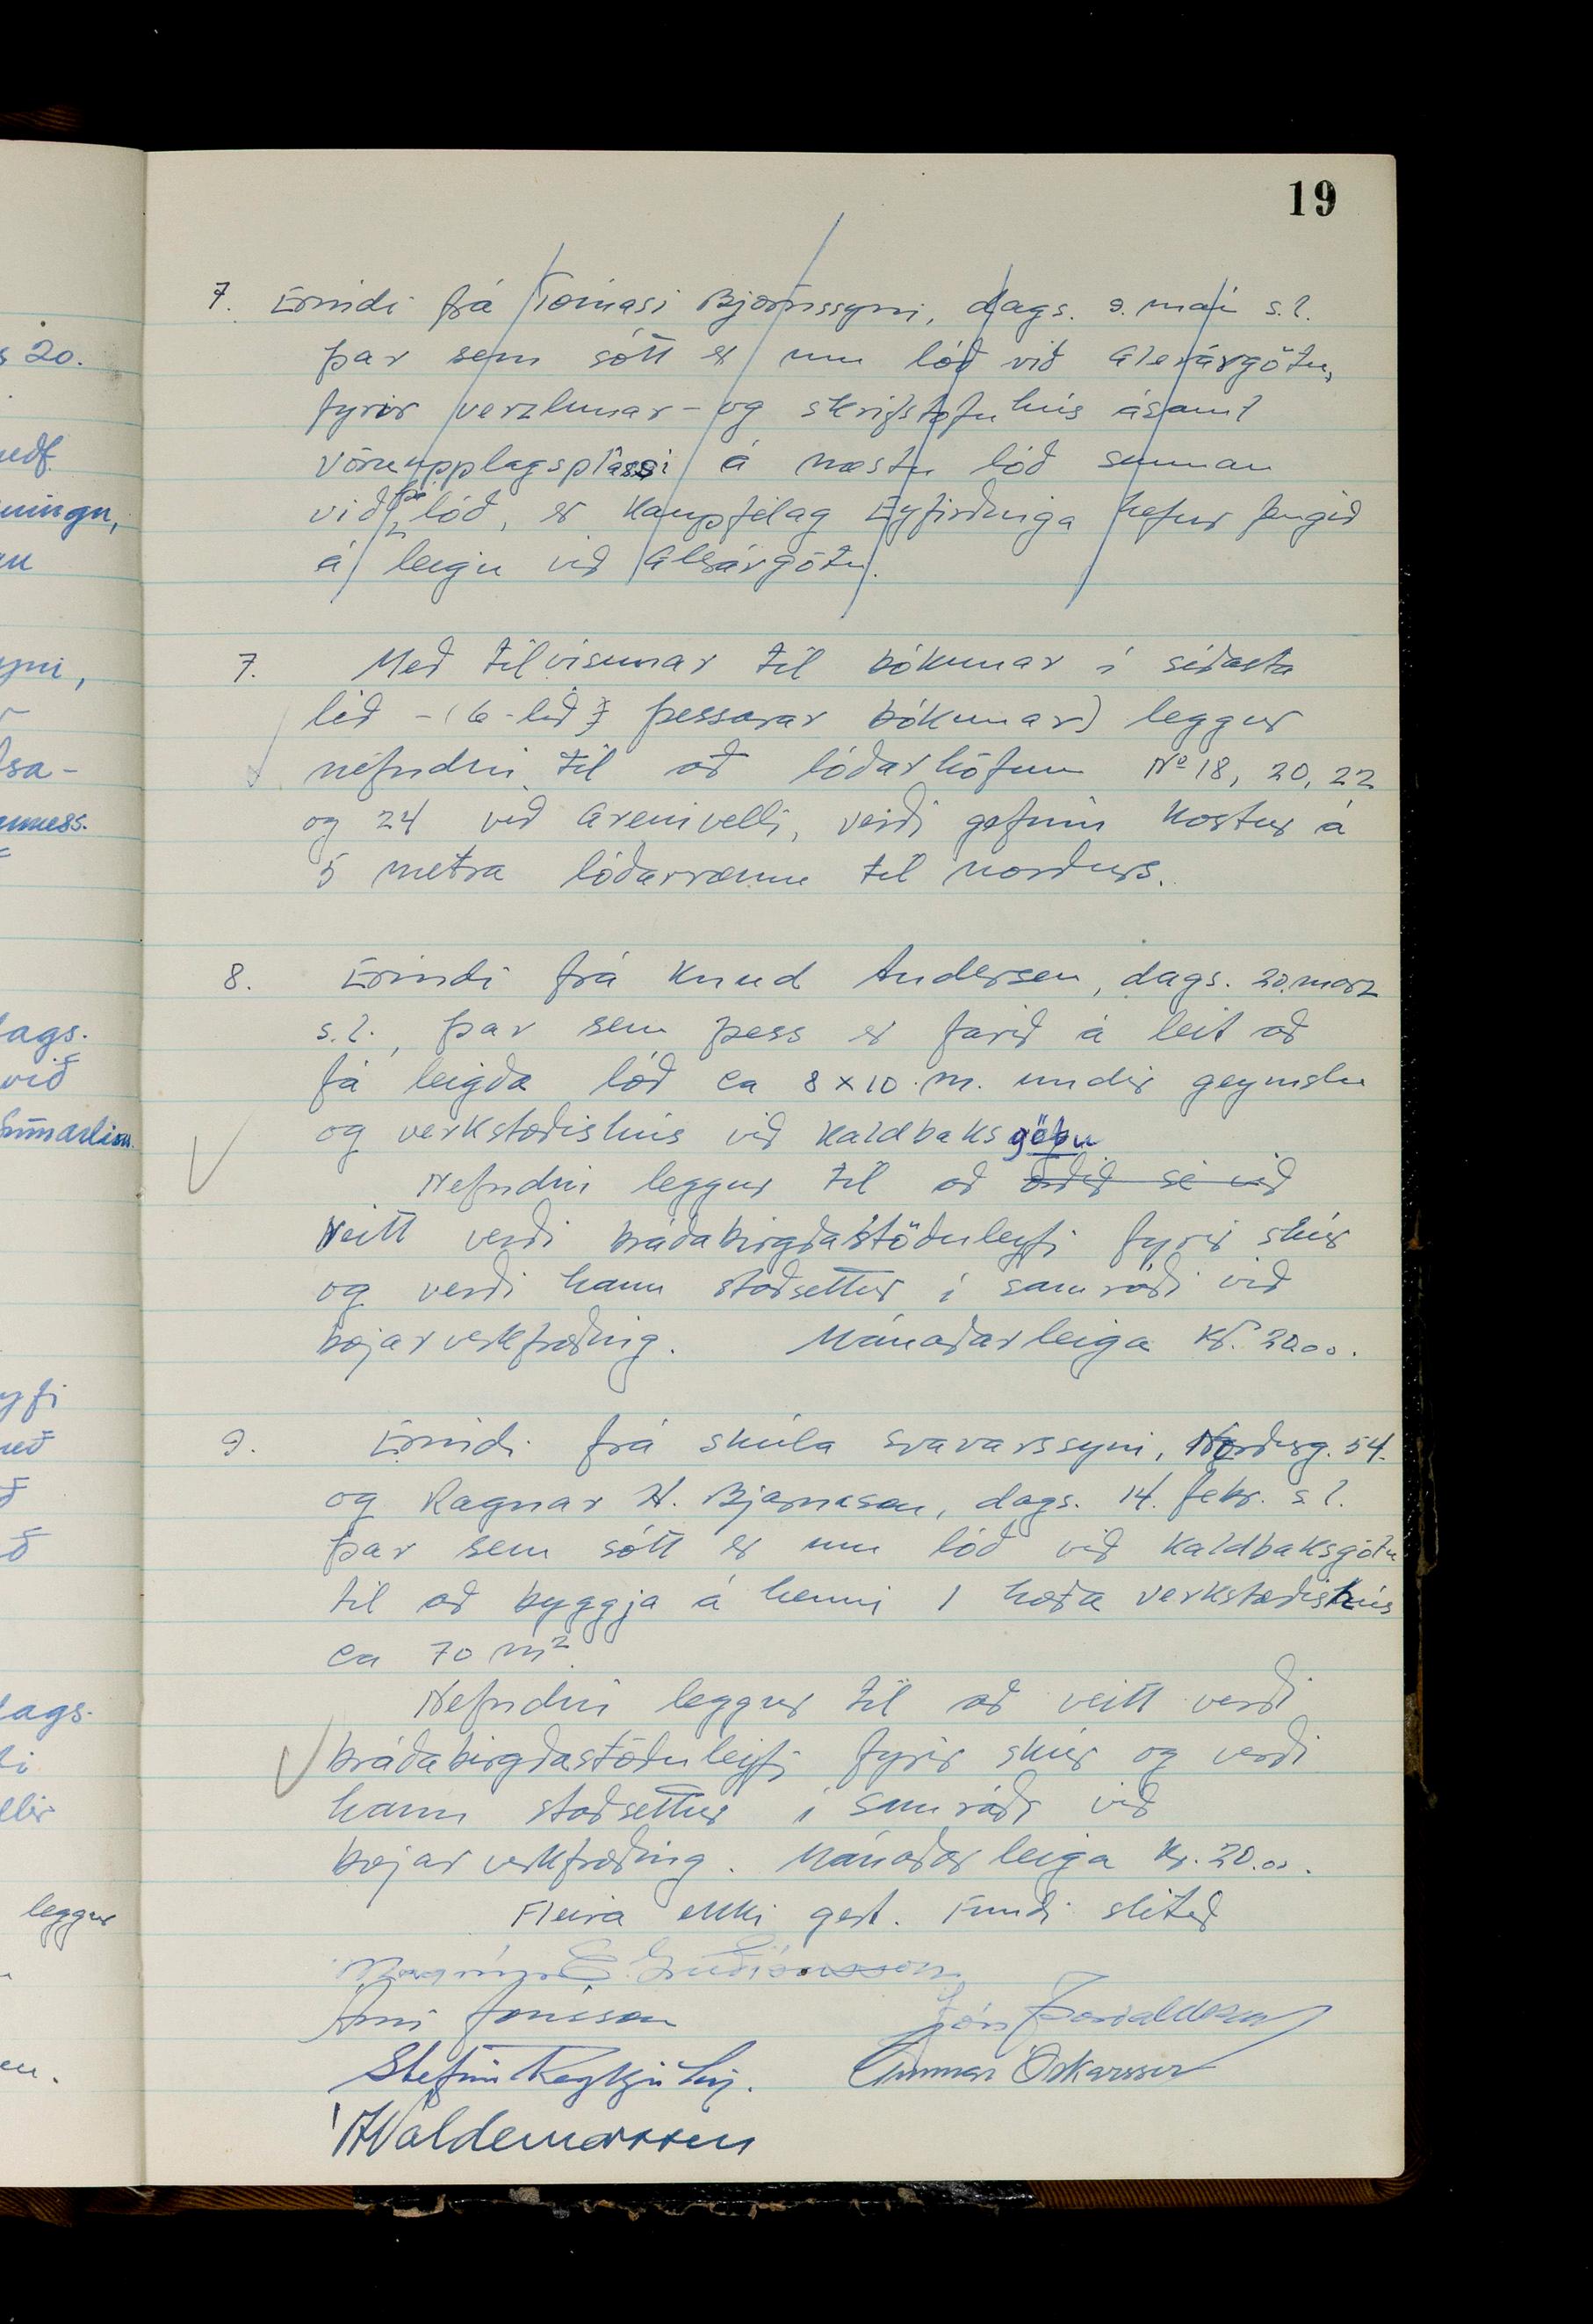 19
7. Erindi frá Tómasi Björnssyni, dags. 9. maí s.l.
þar sem sótt er um lóð við Glerárgötu,
fyrir verzlunar- og skrifstofuhús ásamt
vöruupplagsplássi á næstu lóð sunnan
við þá lóð, er Kaupfélag Eyfirðinga hefur fengið
á leigu við Glerárgötu.
7. Með tilvísunar til bókunar í síðasta
lið - (6-lið þessarar bókunar) leggur
nefndin til að lóðarhöfum No 18, 20, 22
og 24 við Grenivelli, verði gefinn kostur á
5 metra lóðarræmu til norðurs.
8. Erindi frá Knud Andersen, dags. 20. marz
s.l., þar sem þess er farið á leit að
fá leigða lóð ca 8 x 10 m. undir geymslu
og verkstæðishús við Kaldbaksgötu
Nefndin leggur til að orðið sé við
Veitt verði bráðabirgðastöðuleyfi fyrir skúr
og verði hann staðsettur í samráði við
bæjarverkfræðing. Mánaðarleiga kr. 20.00.
9. Erindi frá Skúla Svavarssyni, Norðurg. 54.
og Ragnar H. Bjarnason, dags. 14. febr. s.l.
þar sem sótt er um lóð við Kaldbaksgötu
til að byggja á henni 1 hæða verkstæðishús
ca 70 m².
Nefndin leggur til að veitt verði
bráðabirgðastöðuleyfi fyrir skúr og verði
hann staðsettur í samráði við
bæjarverkfræðing. Mánaðar leiga kr. 20.00.
Fleira ekki gert. Fundi slitið
Magnús E. Guðjónsson
Árni Jónsson Jón Þorvaldsson
Stefán Reykjalín. Gunnar Óskarsson
Waldemarsson
s 20.
ags.
við
leggur